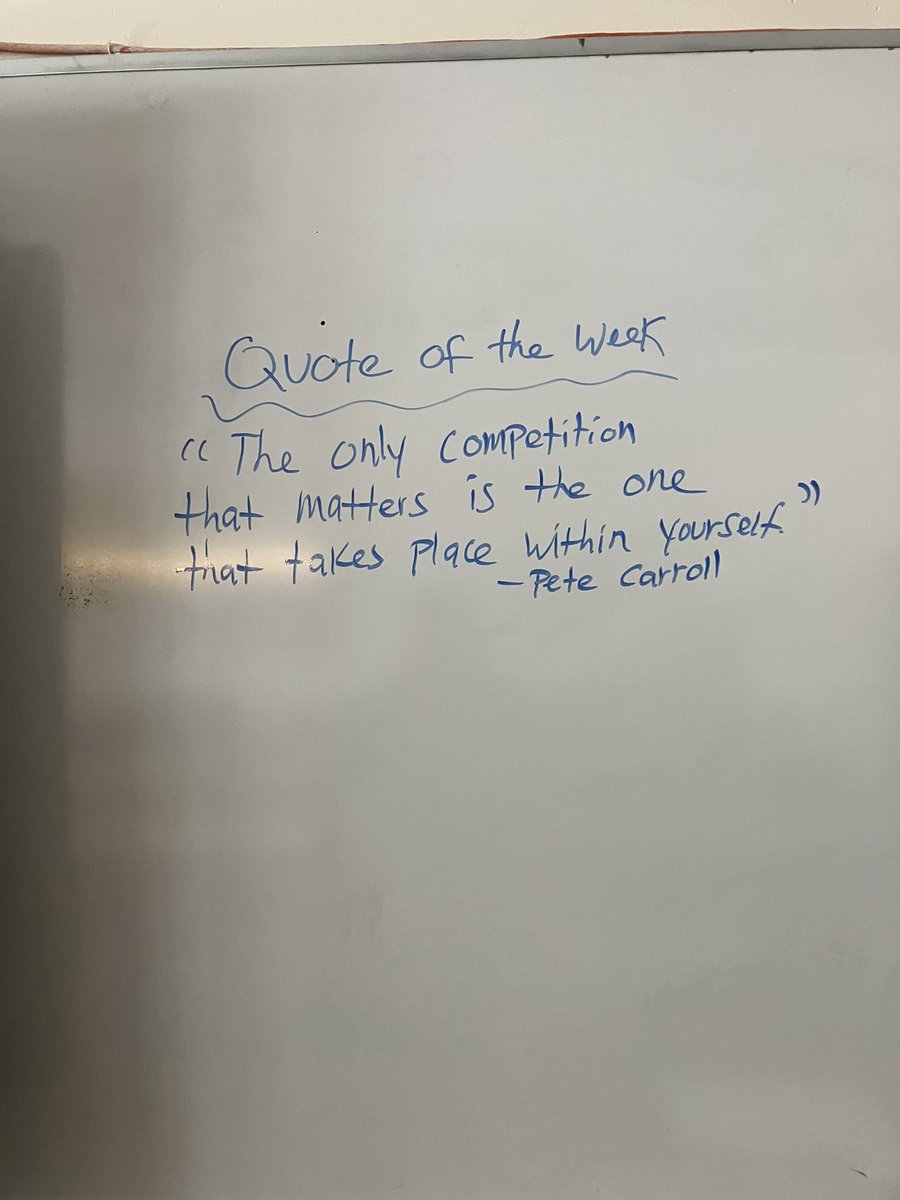 Quote of the Week
"The only competition
that matters is the one
that takes place within yourself."
- Pete Carroll